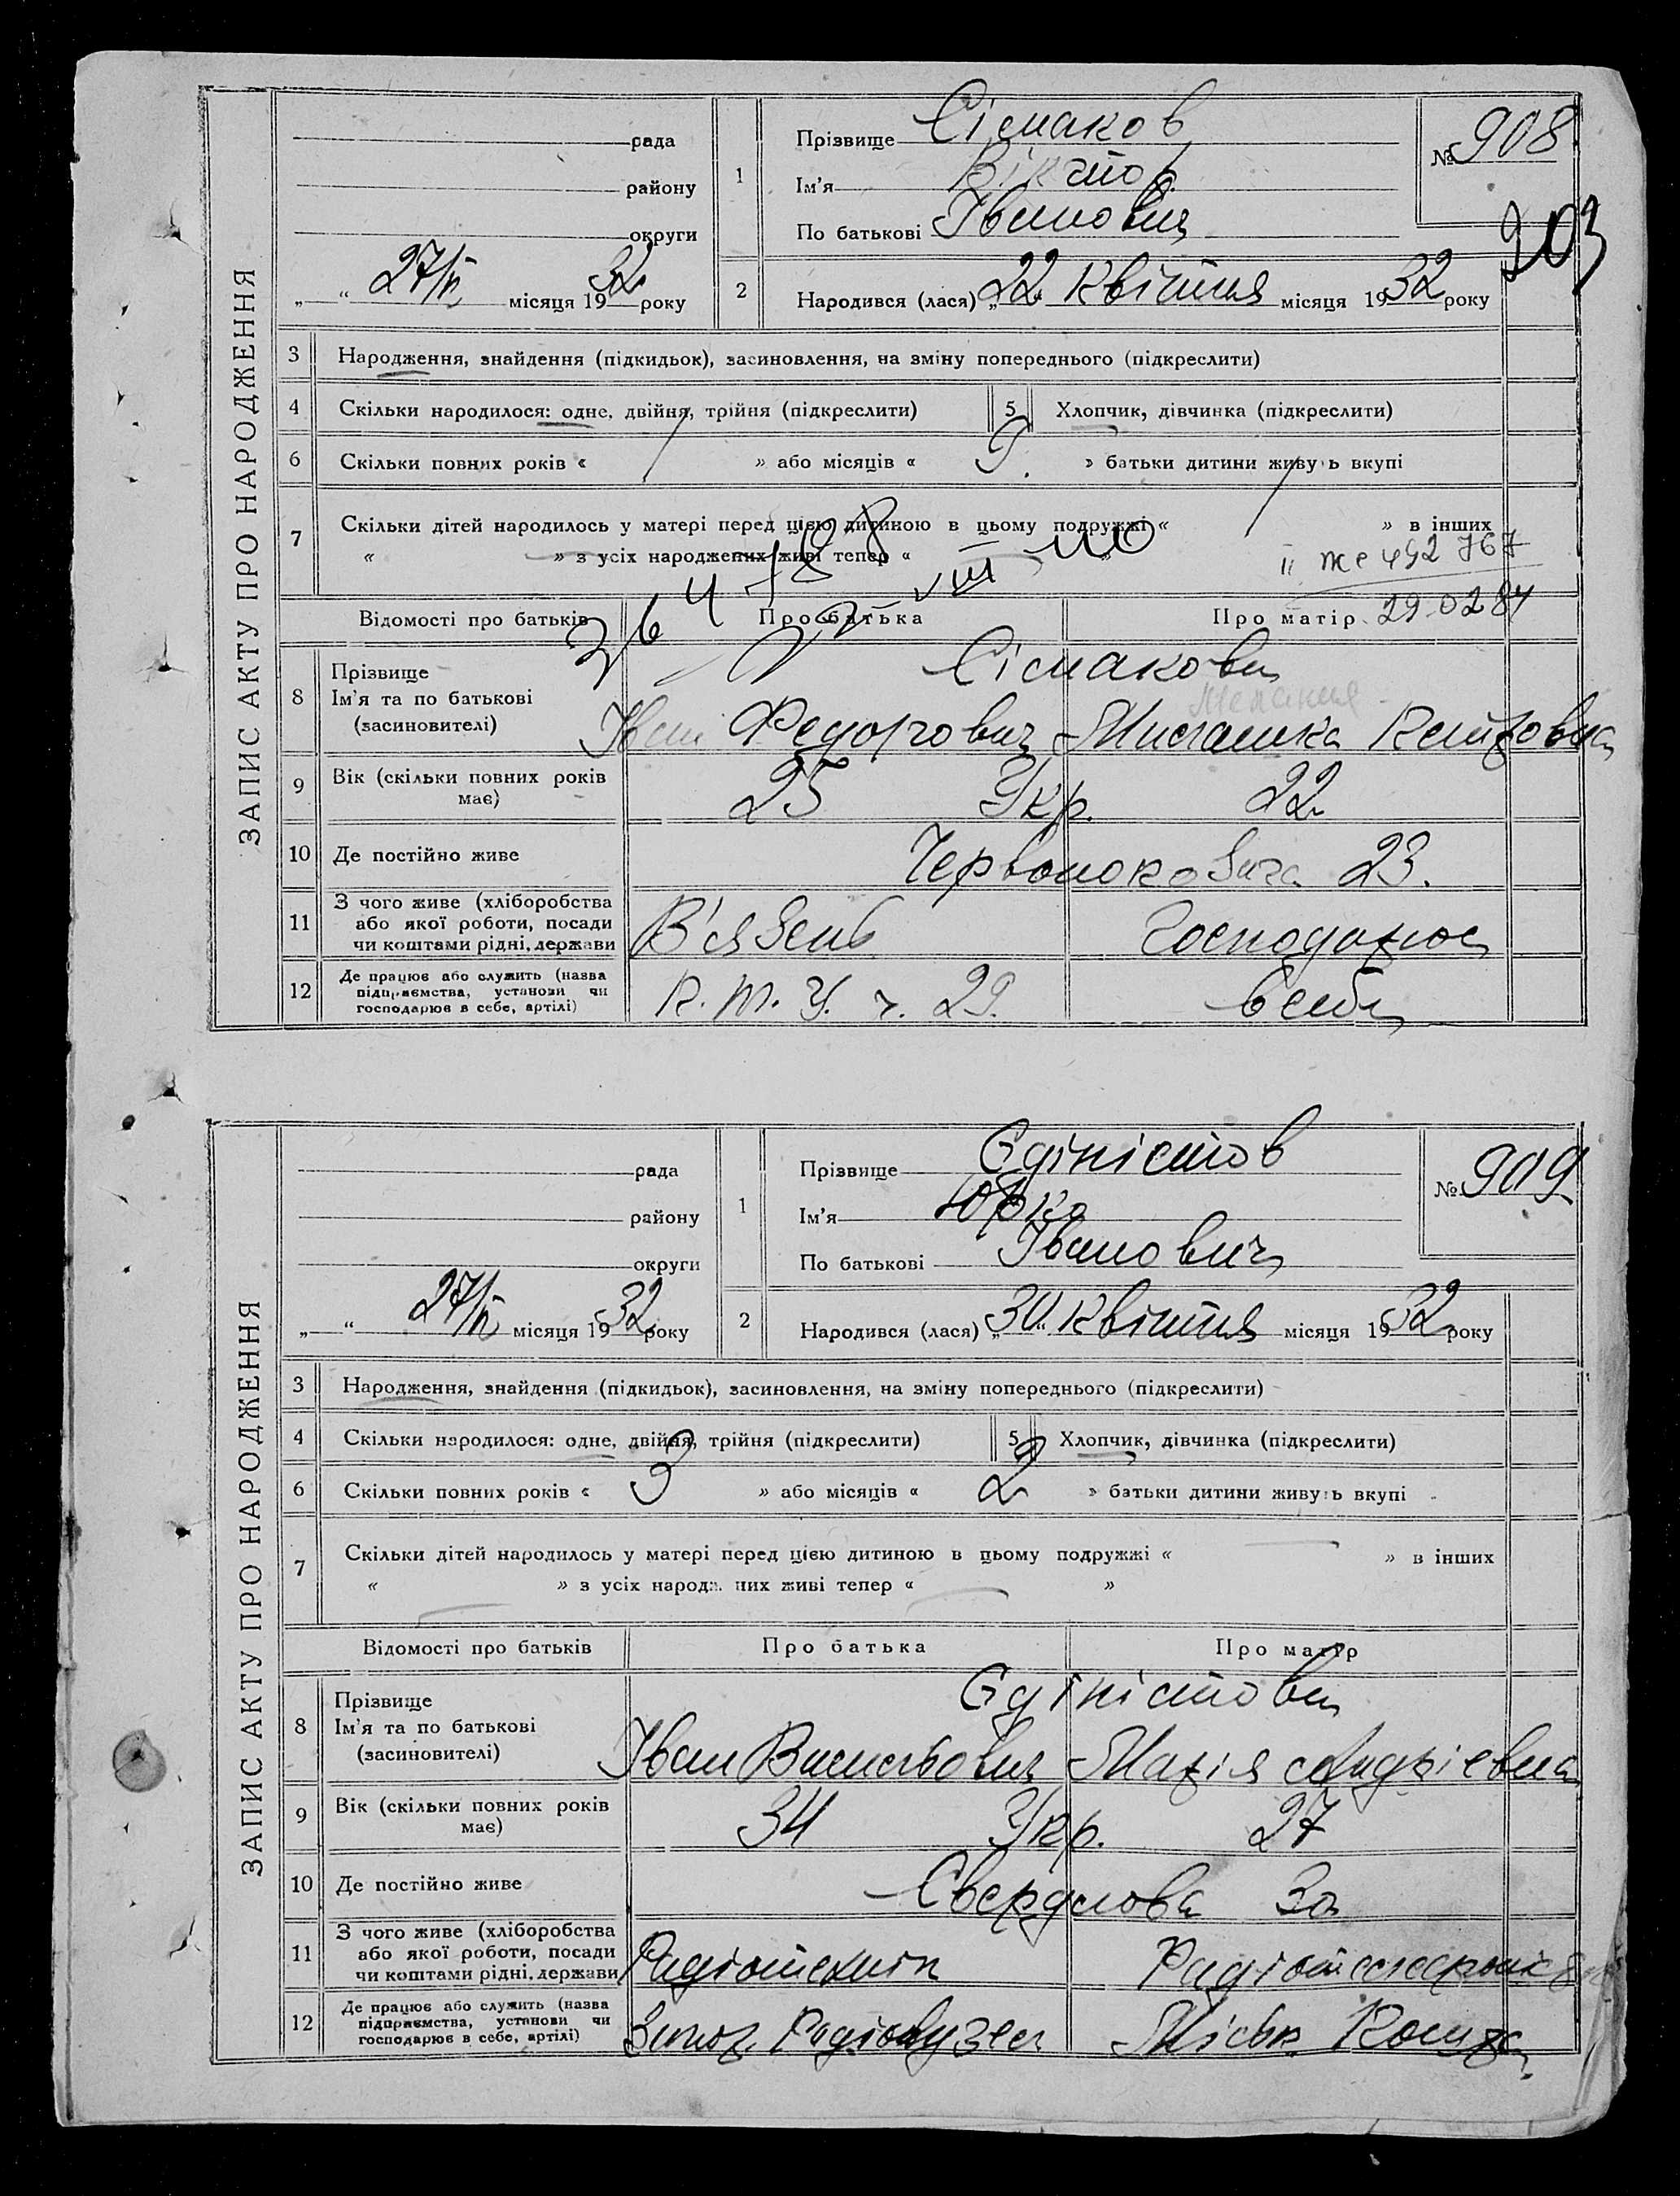 ЗАПИС АКТУ ПРО НАРОДЖЕННЯ
рада
району
округи
„ “ 27/IV місяця 1932 року
1
Прізвище Сімаков
Ім'я Віктор
По батькові Іванович
№ 908
903
2
Народився (лася) „22 Квітня місяця 1932 року
3 Народження, знайдення (підкидьок), засиновлення, на зміну попереднього (підкреслити)
4 Скільки народилося: одне, двійня, трійня (підкреслити)
5 Хлопчик, дівчинка (підкреслити)
6 Скільки повних років « » або місяців « 9. » батьки дитини живуть вкупі
7 Скільки дітей народилось у матері перед цією дитиною в цьому подружжі « » в інших
« » з усіх народжених живі тепер « »
II ЖС 492 767
29.02 84
Відомості про батьків Про батька Про матір
8 Прізвище
Ім'я та по батькові
(засиновителі)
Сімакови
Іван Федорович
9 Вік (скільки повних років
має)
25 Укр. 22
10 Де постійно живе
23.
11 З чого живе (хліборобства
або якої роботи, посади
чи коштами рідні, держави
В'язень Господарює
12 Де працює або служить (назва
підприємства, установи чи
господарює в себе, артілі)
в себе
ЗАПИС АКТУ ПРО НАРОДЖЕННЯ
рада
району
округи
„ “ 27/IV місяця 1932 року
1
Прізвище Єдіністов
Ім'я Юрко
По батькові Іванович
№ 909
2
Народився (лася) „ Квітня місяця 1932 року
3 Народження, знайдення (підкидьок), засиновлення, на зміну попереднього (підкреслити)
4 Скільки народилося: одне, двійня, трійня (підкреслити)
5 Хлопчик, дівчинка (підкреслити)
6 Скільки повних років « 3 » або місяців « 2 » батьки дитини живуть вкупі
7 Скільки дітей народилось у матері перед цією дитиною в цьому подружжі « » в інших
« » з усіх народжених живі тепер « »
Відомості про батьків Про батька Про матір
8 Прізвище
Ім'я та по батькові
(засиновителі)
Єдіністови
Іван Васильович Марія Андрієвна
9 Вік (скільки повних років
має)
34 Укр. 27
10 Де постійно живе
Свердлова
11 З чого живе (хліборобства
або якої роботи, посади
чи коштами рідні, держави
Радіотехнік
12 Де працює або служить (назва
підприємства, установи чи
господарює в себе, артілі)
Запор. Радіовузел